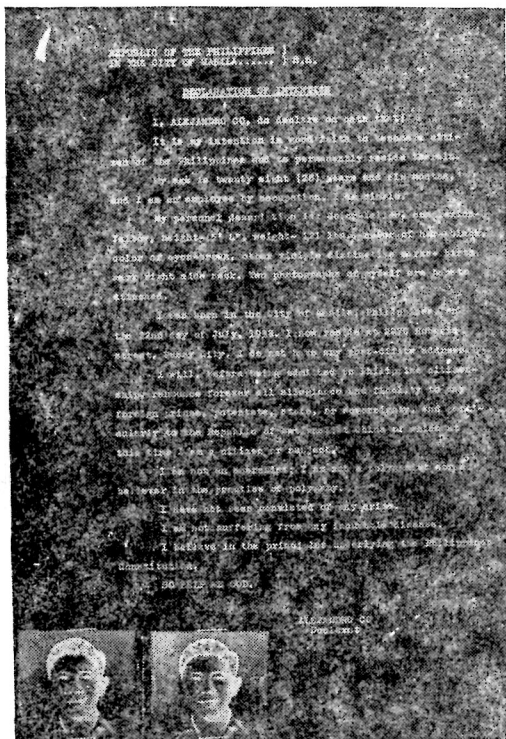 REPUBLIC OF THE PHILIPPINES )
IN THE CITY OF MANILA...... ) S.S.
DECLARATION OF INTENTION
I, ALEJANDRO CO, do declare on oath that:
It is my intention in good faith to become a citi-
zen of the Philippines and to permanently reside therein.
My age is twenty eight (28) years and six months,
and I am an employee by occupation. I am single.
My personal description is: color- complexion-
height- 5' weight- 121 lbs., color of hair-
color of eyes-brown, other visible distinctive marks- birth
mark right side neck. Two photographs of myself are hereto
attached.
I was born in the City of Manila, Philippines, on
the 22nd day of July, I now reside at
street, Pasay City. I do not have any address.
I will, before being admitted to Philippine citizen-
ship, renounce forever all allegiance and fidelity to any
foreign prince, potentate, state, or sovereignty, and parti-
cularly to the Republic of China of which at
this time I am a citizen or subject.
I am not an anarchist; I am not a polygamist nor a
believer in the practice of polygamy.
I have not been convicted of any crime.
I am not suffering from any incurable disease.
I believe in the principles underlying the Philippine
Constitution.
SO HELP ME GOD.
ALEJANDRO CO
Declarant